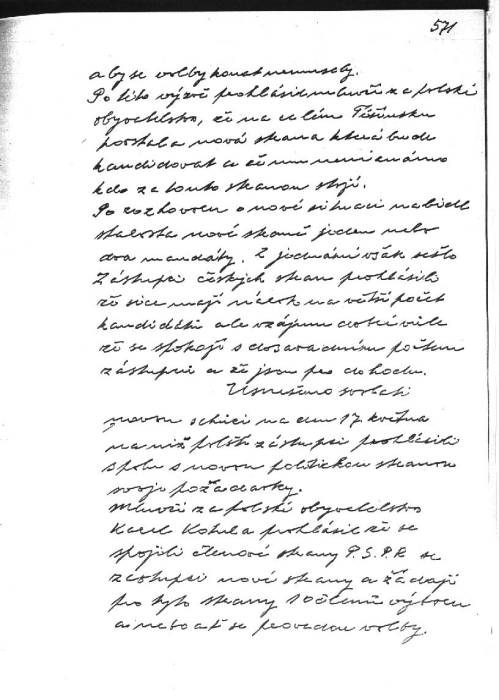 571
aby se volby konat nemusely.
Po této výzvě prohlásil mluvčí za polské
obyvatelstvo, že na celém Těšínsku
povstala nová strana která bude
kandidovat a že mu není známo
kdo za touto stranou stojí.
Po rozhovoru o nové situaci nabídl
starosta nové straně jeden nebo
dva mandáty. Z jednání však sešlo
Zástupci českých stran prohlásili
že sice mají nárok na větší počet
kandidátů ale vzájmu dobré vůle
že se spokojí s dosavadním počtem
zástupců a že jsou pro dohodu.
Usneseno svolati
novou schůzi na den 17. května
na níž polští zástupci prohlásili
spolu s novou politickou stranou
svoje požadavky.
Mluvčí za polské obyvatelstvo
Karel Kotula prohlásil že se
spojili členové strany P.S.P.R se
zástupci nové strany a žádají
pro tyto strany 10 členů výboru
a nebo ať se provedou volby.